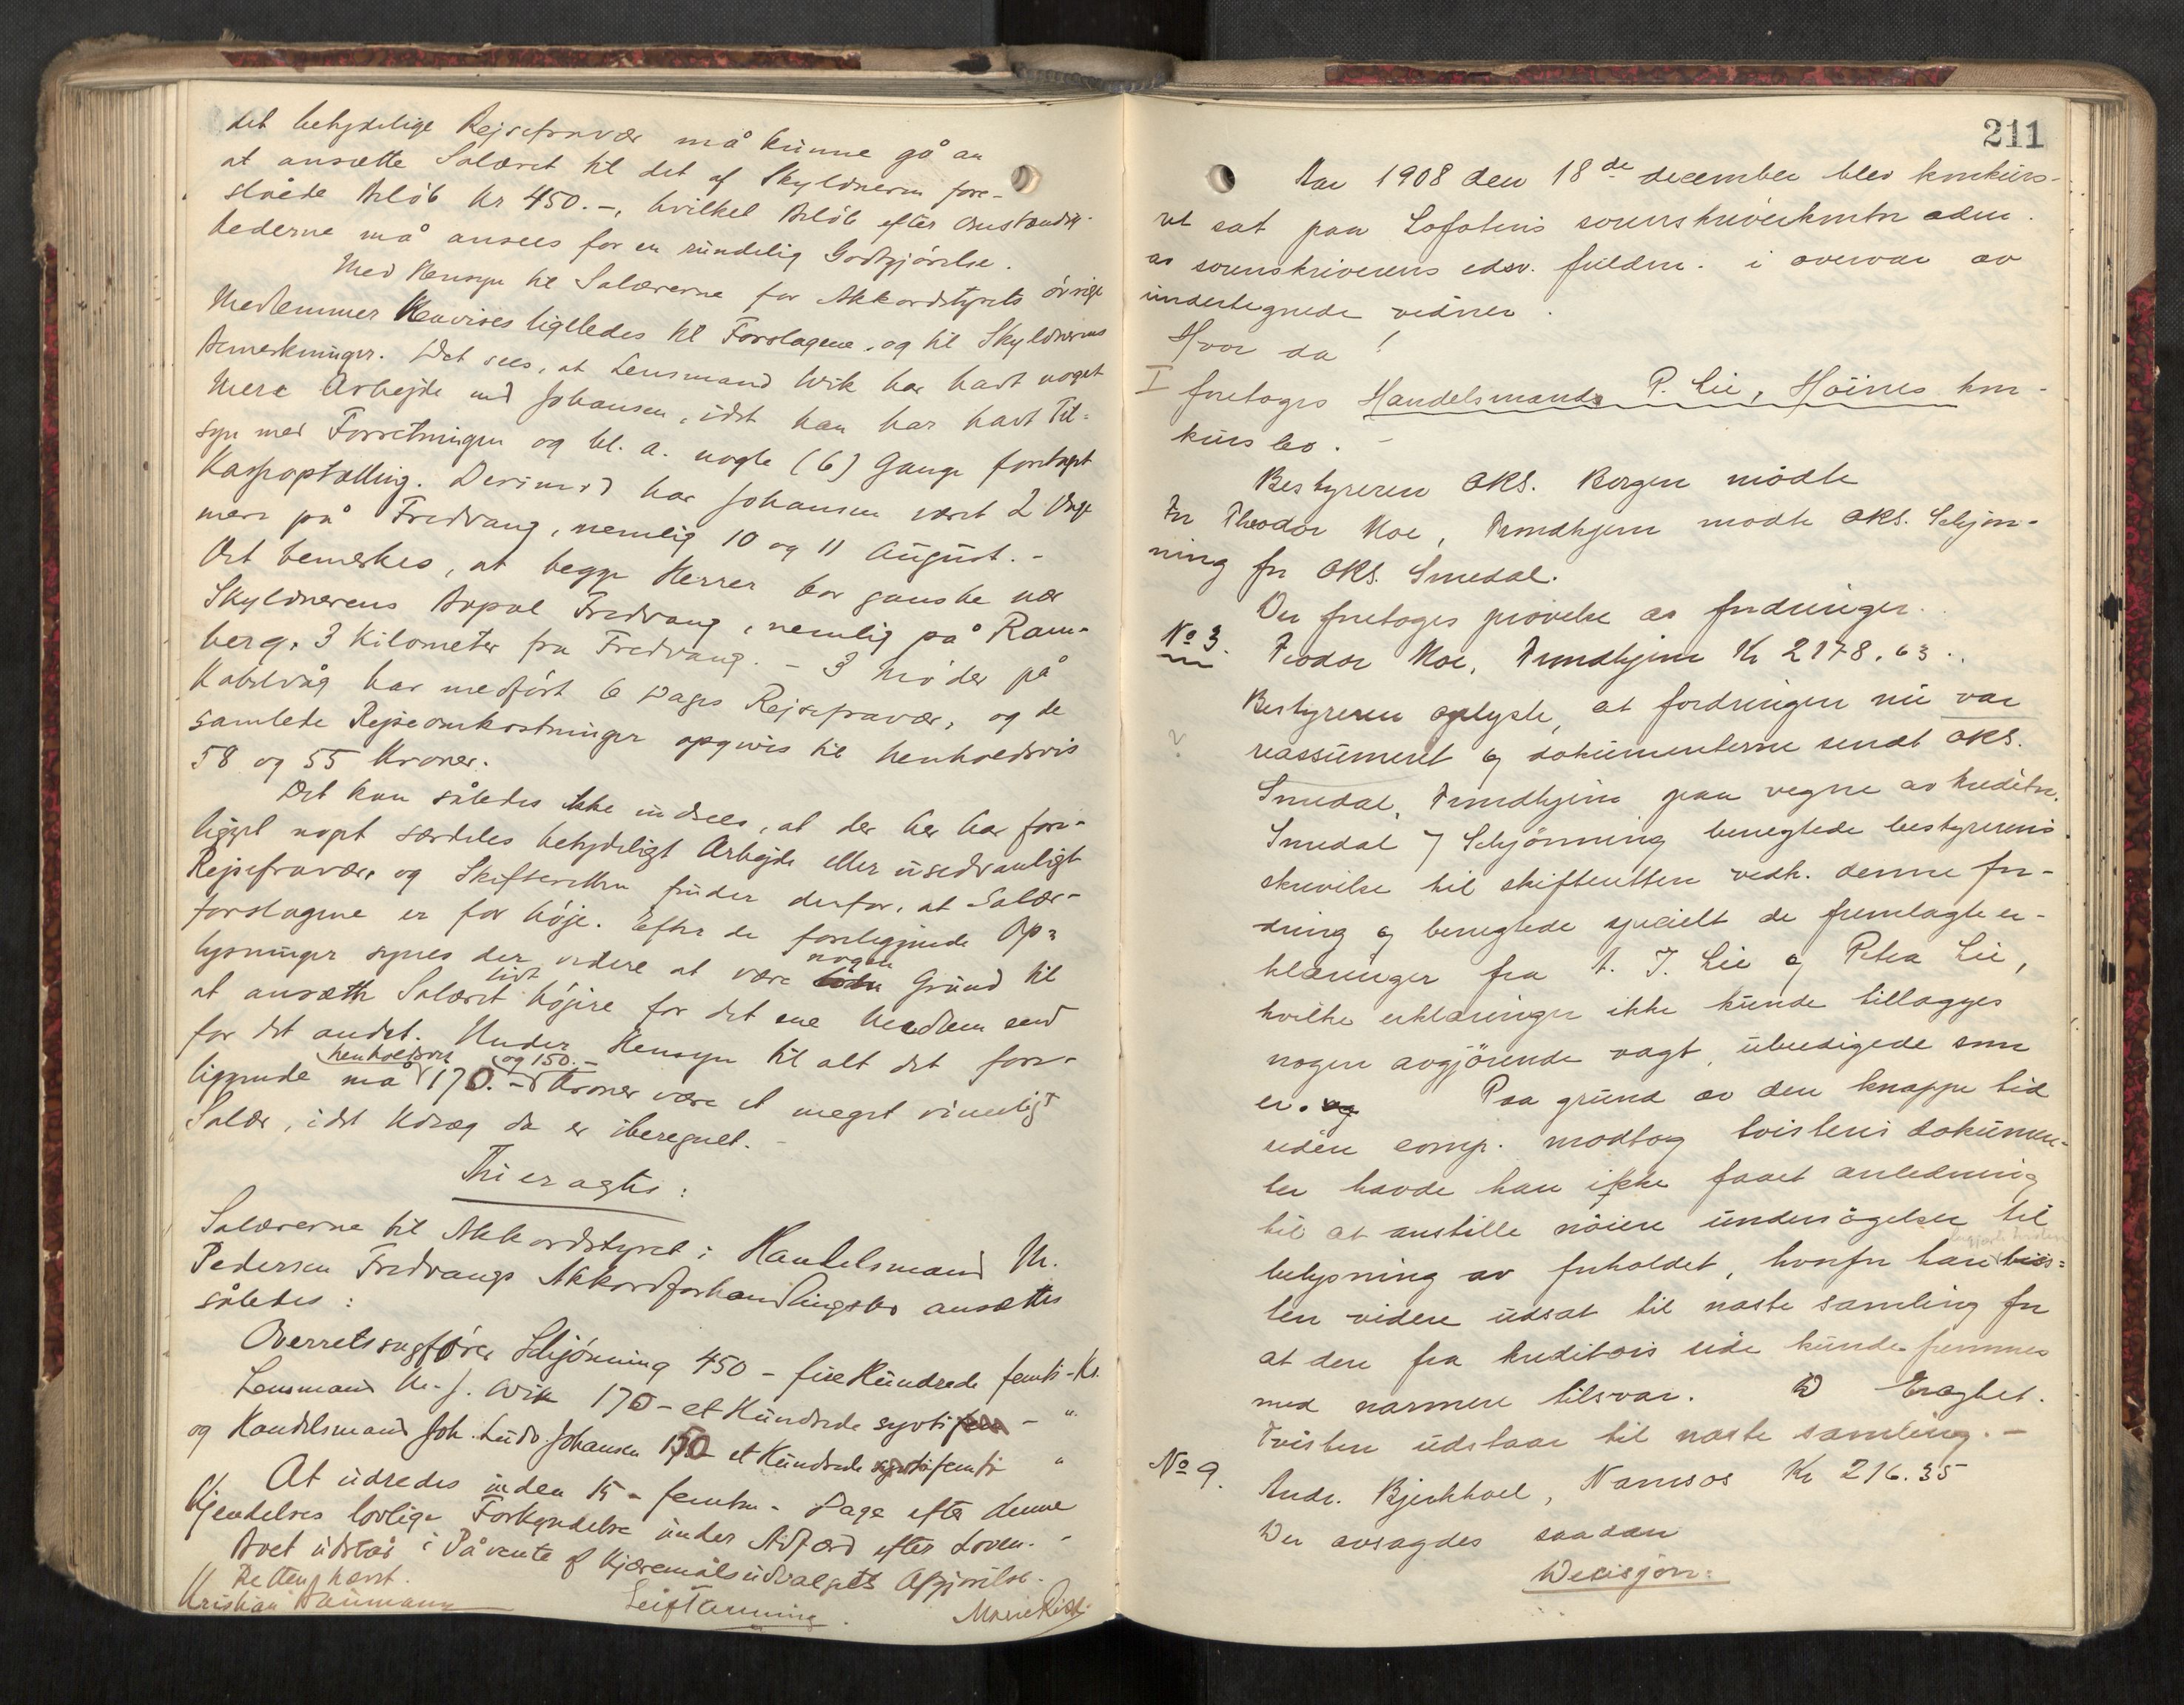 det betydelige Rejsefravær må kunne gå an
at ansætte Salæret til det af Skyldneren fore-
slåede Beløb Kr 450.-, hvilket Beløb efter Omstændig-
hederne må ansees for en rundelig Godtgjörelse.
Med Hensyn til Salærerne for Akkordstyrets övrige
Medlemmer henvises ligeledes til Forslagene og til Skyldnerens
Bemerkninger. Det sees, at Lensmand Wik har havt noget
mere Arbejde end Johansen, idet han har havt Til-
syn med Forretningen og bl. a. nogle (6) Gange foretaget
Kasseoptælling. Derimod har Johansen været 2 Dage
mere på Fredvang, nemlig 10 og 11 August.-
Det bemerkes, at begge Herrer bor ganske nær
Skyldnerens Bopæl Fredvang, nemlig på Ram-
berg, 3 Kilometer fra Fredvang. - 3 Möder på
Kabelvåg har medfört 6 Dages Rejsefravær, og de
samlede Rejseomkostninger opgives til henholdsvis
58 og 55 Kroner.
Det kan således ikke indsees, at der her har fore-
ligget noget særdeles betydeligt Arbejde eller usedvanligt
Rejsefravær, og Skifteretten finder derfor, at Salær-
forslagene er for höje. Efter de foreliggende Op-
lysninger synes der videre at være nogen Grund til
at ansætte Salæret lidt höjere for det ene Medlem end
for det andet. Under Hensyn til alt det fore-
liggende må henholdsvis 170.- og 150.- Kroner være et meget rimeligt
Salær, idet Udlæg da er iberegnet.-
Thi eragtes:
Salærerne til Akkordstyret i Handelsmand M.
Pedersen Fredvangs Akkordforhandlingsbo ansættes
således:
Overretssagförer Schjönning 450 - fire Hundrede femti - Kr.
Lensmand M. J. Wik 170 - et Hundrede sytti - "
og Handelsmand Joh. Ludv. Johansen 150 et Hundrede femti "
At udredes inden 15 - femten - Dage efter denne
Kjendelses lovlige Forkyndelse under Adfærd efter Loven.-
Boet udstår i Påvente af Kjæremålsudvalgets Afgjörelse.
Retten hævet.
Kristian Naumann Leif Tanning. Marie
211
Aar 1908 den 18de december blev konkurs-
ret sat paa Lofotens sorenskriverkontor adm.
av sorenskriverens edsv. fuldm. i overvær av
undertegnede vidner.
Hvor da!
I foretoges Handelsmand P. Lie, Höines kon-
kursbo.-
Bestyreren oks. Borgen mödte
For Theodor Moe, Trondhjem mödte oks. Schjön-
ning for oks. Smedal.
Der foretoges prövelse av fordringer.
No 3. Teodor Moe, Trondhjem Kr 2178.63.
Bestyreren oplyste, at fordringen nu var
reassumert og dokumenterne sendt oks.
Smedal, Trondhjem paa vegne av kreditor.
Smedal / Schjönning benegtede bestyrerens
skrivelse til skifteretten vedk. denne for-
dring og benegtede specielt de fremlagte er-
klæringer fra A. J. Lie og Petra Lie,
hvilke erklæringer ikke kunde tillægges
nogen avgjörende vægt, ubeedigede som
er. Paa grund av den knappe tid
siden comp. modtog tvistens dokumen-
ter havde han ikke faaet anledning
til at anstille nöiere undersögelser til
belysning av forholdet, hvorfor han begjærte tvisten
ten videre udsat til næste samling for
at den fra kreditors side kunde fremmes
med nærmere tilsvar. D Eragtet.
Tvisten udstaar til næste samling.-
No 9. Andr. Bjerkhoel, Namsos Kr 216.35
Der avsagdes saadan
Decisjon: